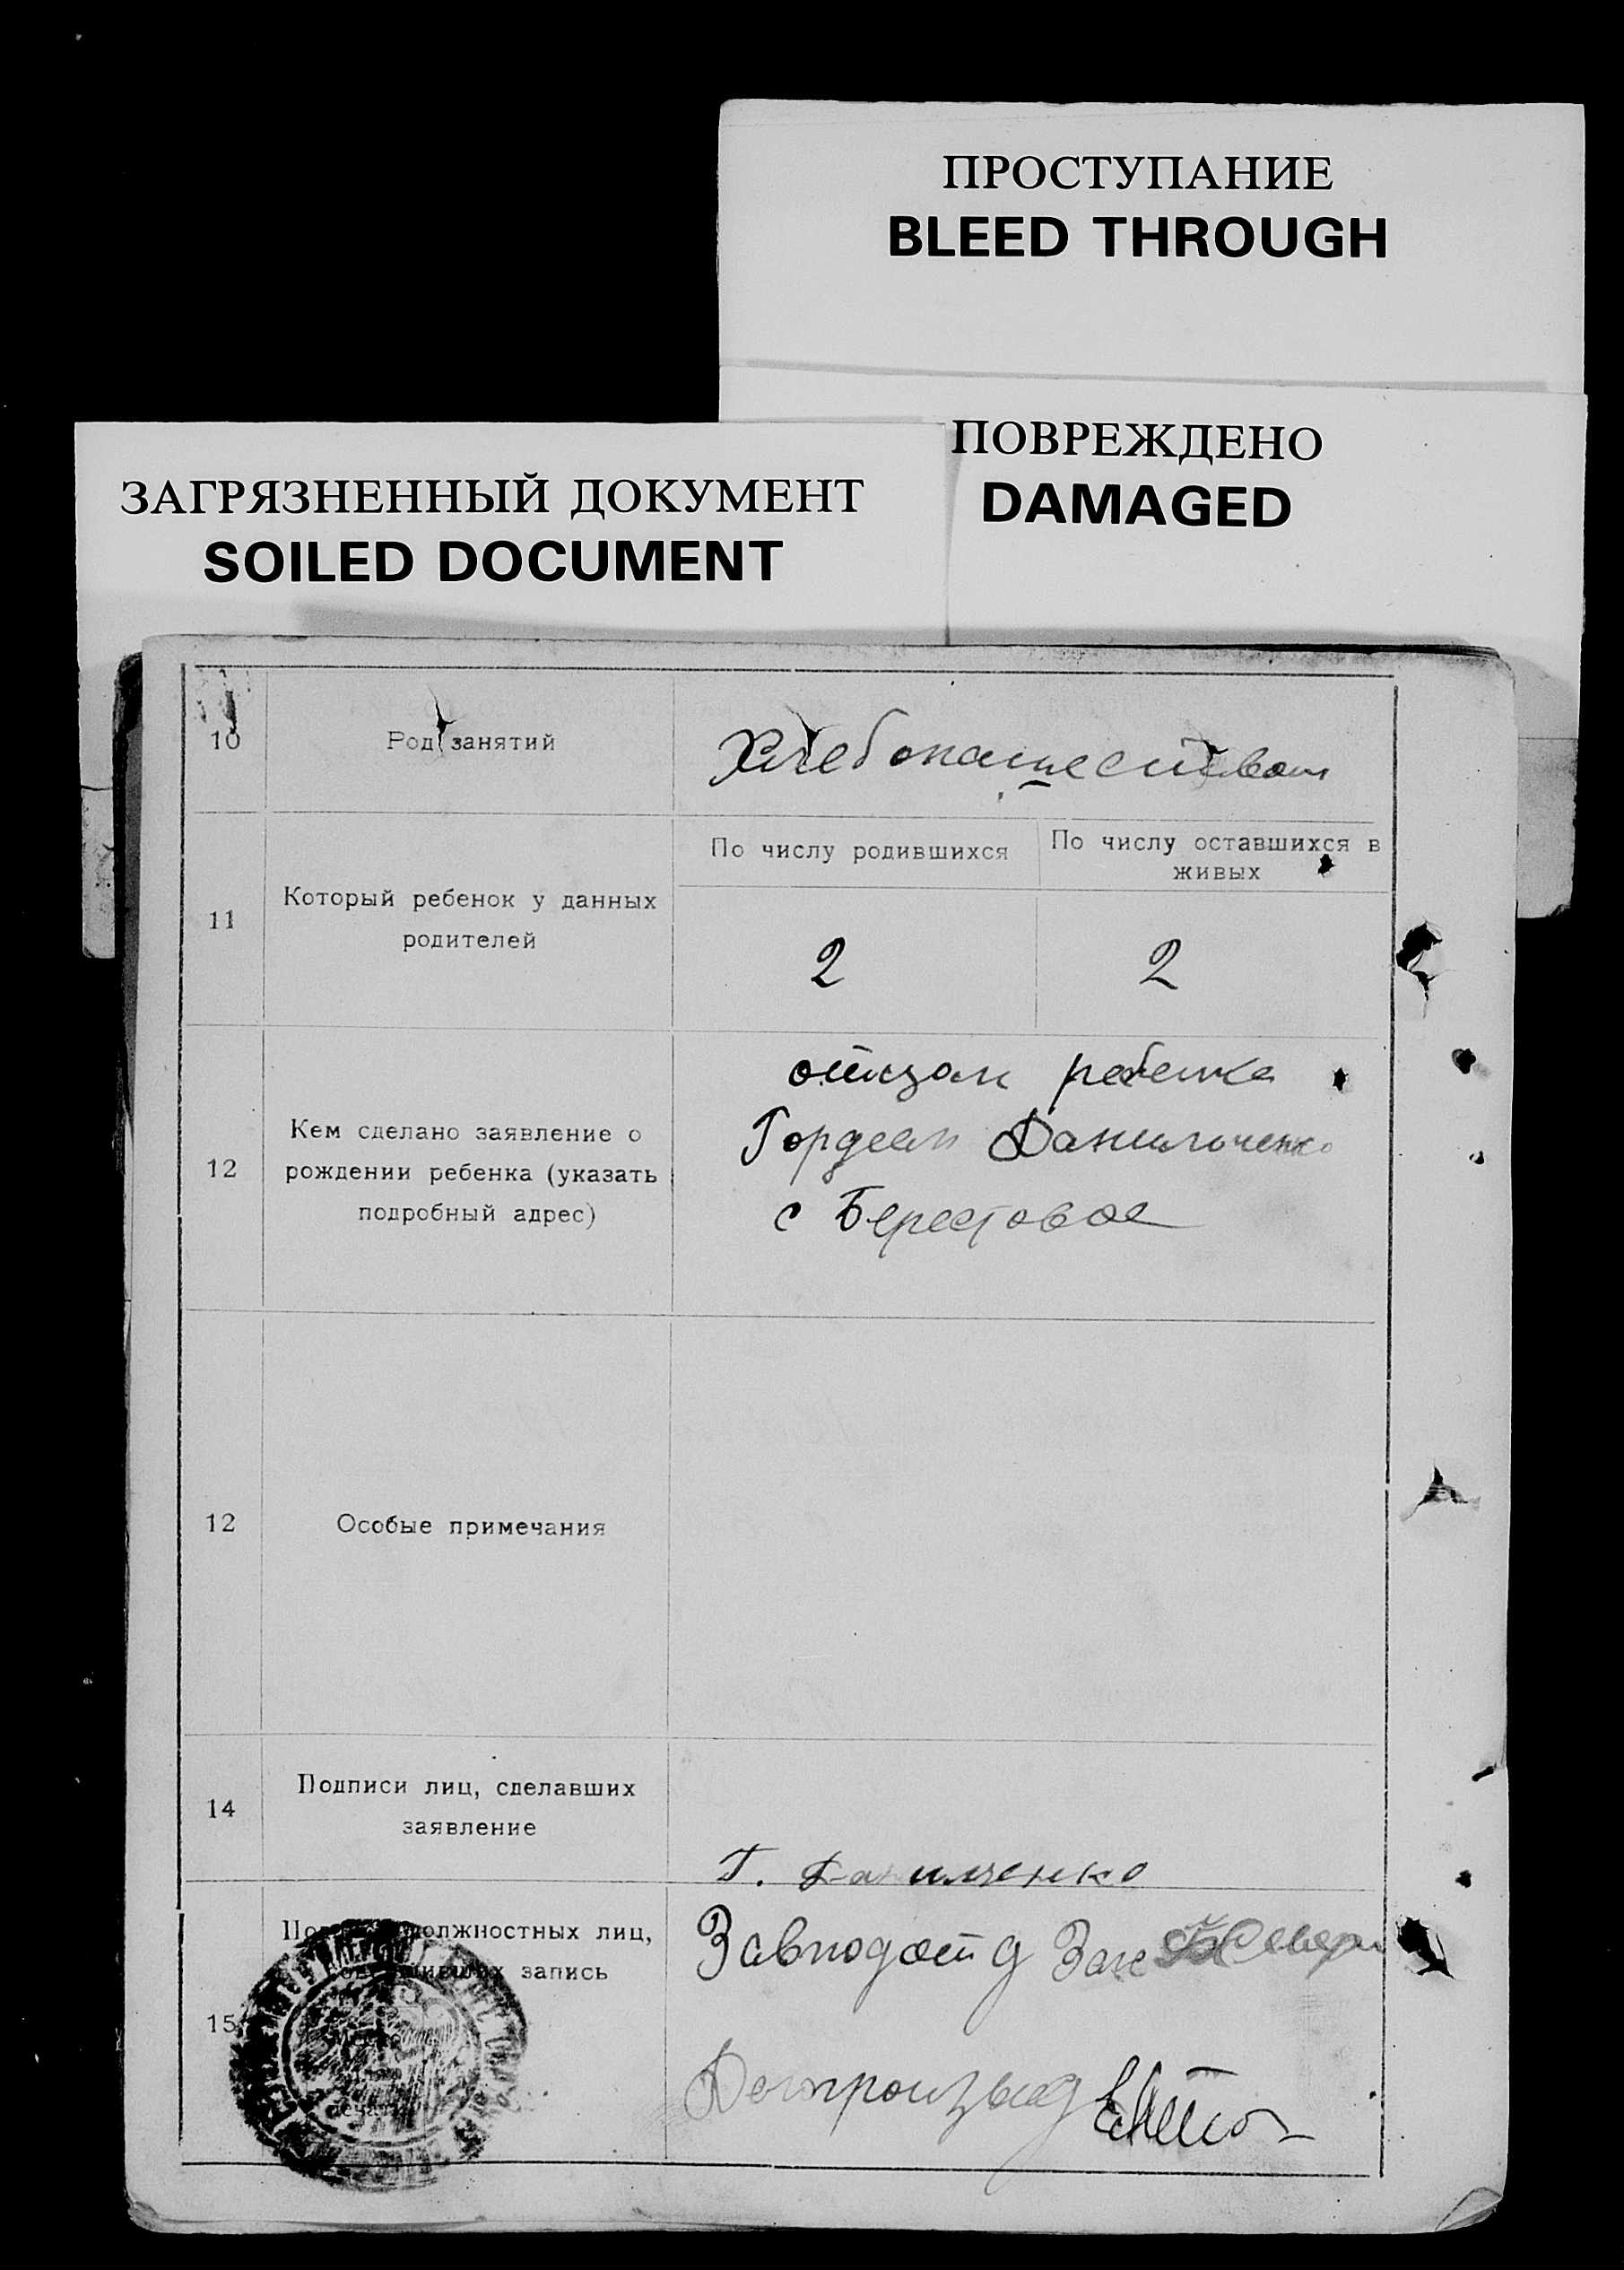 ПРОСТУПАНИЕ
BLEED THROUGH
ПОВРЕЖДЕНО
DAMAGED
ЗАГРЯЗНЕННЫЙ ДОКУМЕНТ
SOILED DOCUMENT
10
Род занятий
Хлебопашеством
11
Который ребенок у данных
родителей
По числу родившихся
По числу оставшихся в
живых
2
2
12
Кем сделано заявление о
рождении ребенка (указать
подробный адрес)
отцом ребенка
Гордеем Данильченко
с Берестовое
12
Особые примечания
14
Подписи лиц, сделавших
заявление
Г. Данилченко
15
должностных лиц,
запись
Завподотд Загс
Делопроизвод